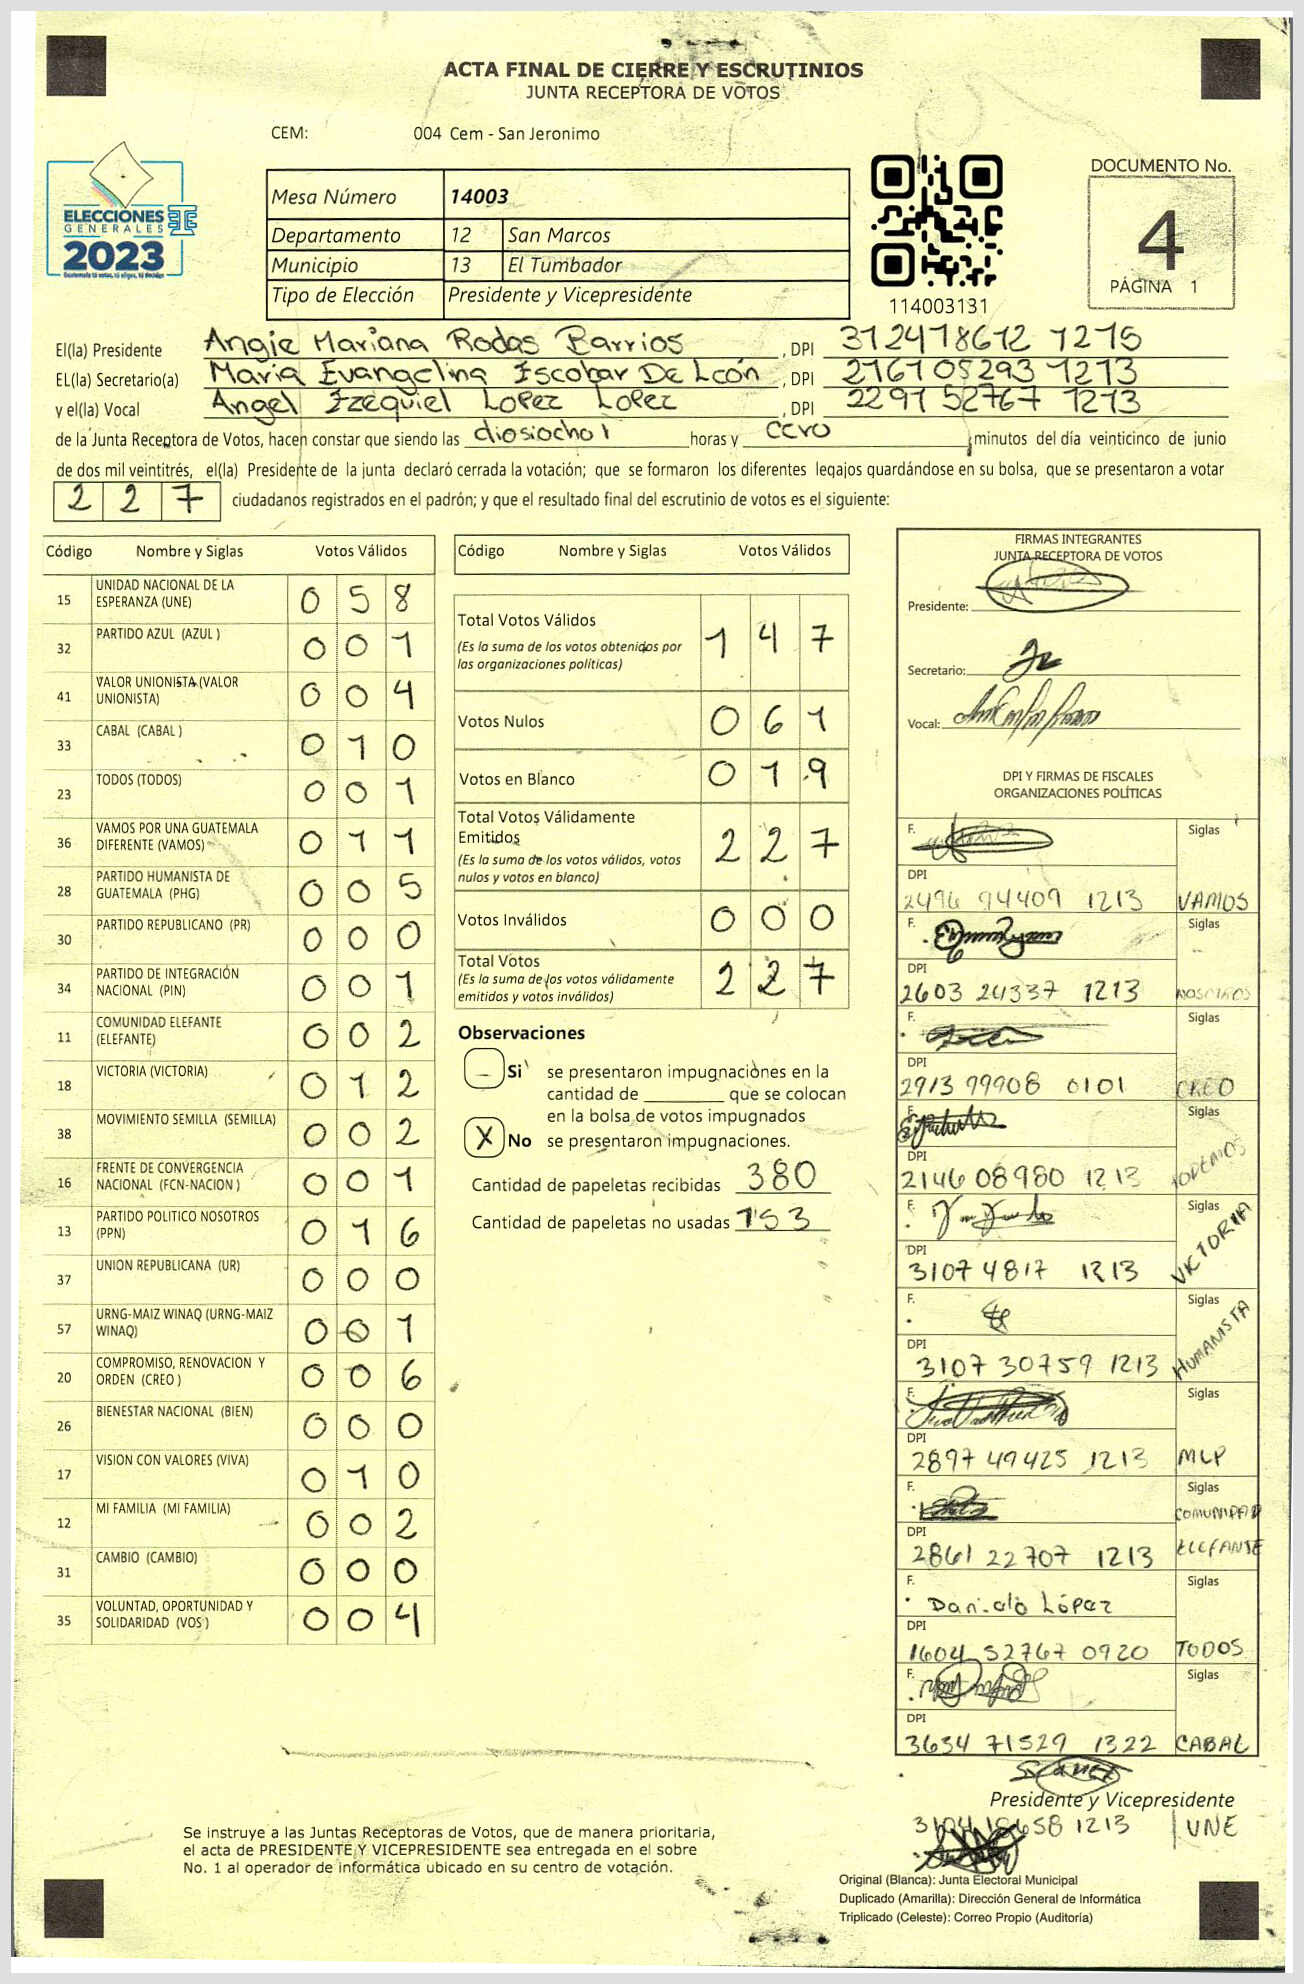 ACTA FINAL DE CIERRE Y ESCRUTINIOS
JUNTA RECEPTORA DE VOTOS
CEM: 004 Cem - San Jeronimo
ELECCIONES
GENERALES
2023
Guatemala tú votas, tú eliges, tú decides
Mesa Número 14003
Departamento 12 San Marcos
Municipio 13 El Tumbador
Tipo de Elección Presidente y Vicepresidente
114003131
DOCUMENTO No.
4
PÁGINA 1
El(la) Presidente Angie Mariana Rodas Barrios , DPI 312478612 1215
EL(la) Secretario(a) Maria Evangelina Escobar De León , DPI 216705293 1213
y el(la) Vocal Angel Ezequiel Lopez Lopez , DPI 2291 52767 1213
de la Junta Receptora de Votos, hacen constar que siendo las diosiocho horas y cero minutos del día veinticinco de junio
de dos mil veintitrés, el(la) Presidente de la junta declaró cerrada la votación; que se formaron los diferentes legajos guardándose en su bolsa, que se presentaron a votar
2 2 7 ciudadanos registrados en el padrón; y que el resultado final del escrutinio de votos es el siguiente:
Código Nombre y Siglas Votos Válidos
15 UNIDAD NACIONAL DE LA ESPERANZA (UNE) 0 5 8
32 PARTIDO AZUL (AZUL ) 0 0 1
41 VALOR UNIONISTA (VALOR UNIONISTA) 0 0 4
33 CABAL (CABAL ) 0 1 0
23 TODOS (TODOS) 0 0 1
36 VAMOS POR UNA GUATEMALA DIFERENTE (VAMOS) 0 1 1
28 PARTIDO HUMANISTA DE GUATEMALA (PHG) 0 0 5
30 PARTIDO REPUBLICANO (PR) 0 0 0
34 PARTIDO DE INTEGRACIÓN NACIONAL (PIN) 0 0 1
11 COMUNIDAD ELEFANTE (ELEFANTE) 0 0 2
18 VICTORIA (VICTORIA) 0 1 2
38 MOVIMIENTO SEMILLA (SEMILLA) 0 0 2
16 FRENTE DE CONVERGENCIA NACIONAL (FCN-NACION ) 0 0 1
13 PARTIDO POLITICO NOSOTROS (PPN) 0 1 6
37 UNION REPUBLICANA (UR) 0 0 0
57 URNG-MAIZ WINAQ (URNG-MAIZ WINAQ) 0 0 1
20 COMPROMISO, RENOVACION Y ORDEN (CREO ) 0 0 6
26 BIENESTAR NACIONAL (BIEN) 0 0 0
17 VISION CON VALORES (VIVA) 0 1 0
12 MI FAMILIA (MI FAMILIA) 0 0 2
31 CAMBIO (CAMBIO) 0 0 0
35 VOLUNTAD, OPORTUNIDAD Y SOLIDARIDAD (VOS ) 0 0 4
Código Nombre y Siglas Votos Válidos
Total Votos Válidos 1 4 7
(Es la suma de los votos obtenidos por
las organizaciones políticas)
Votos Nulos 0 6 1
Votos en Blanco 0 1 9
Total Votos Válidamente
Emitidos 2 2 7
(Es la suma de los votos válidos, votos
nulos y votos en blanco)
Votos Inválidos 0 0 0
Total Votos 2 2 7
(Es la suma de los votos válidamente
emitidos y votos inválidos)
Observaciones
Si se presentaron impugnaciones en la
cantidad de ________ que se colocan
en la bolsa de votos impugnados
X No se presentaron impugnaciones.
Cantidad de papeletas recibidas 380
Cantidad de papeletas no usadas 153
FIRMAS INTEGRANTES
JUNTA RECEPTORA DE VOTOS
Presidente:
Secretario:
Vocal:
DPI Y FIRMAS DE FISCALES
ORGANIZACIONES POLÍTICAS
F. Siglas
DPI
2496 94409 1213 VAMOS
F. Siglas
DPI
2603 24337 1213 NOSOTROS
F. Siglas
DPI
2913 99908 0101 CREO
F. Siglas
DPI
2146 08980 1213 PODEMOS
F. Siglas
DPI
3107 4817 1213 VICTORIA
F. Siglas
DPI
3107 30759 1213 HUMANISTA
F. Siglas
DPI
2897 49425 1213 MLP
F. Siglas
DPI
2861 22707 1213 COMUNIDAD ELEFANTE
F. Danilo López Siglas
DPI
1604 52767 0920 TODOS
F. Siglas
DPI
3634 71529 1322 CABAL
Presidente y Vicepresidente
3104 18658 1213 UNE
Se instruye a las Juntas Receptoras de Votos, que de manera prioritaria,
el acta de PRESIDENTE Y VICEPRESIDENTE sea entregada en el sobre
No. 1 al operador de informática ubicado en su centro de votación.
Original (Blanca): Junta Electoral Municipal
Duplicado (Amarilla): Dirección General de Informática
Triplicado (Celeste): Correo Propio (Auditoría)